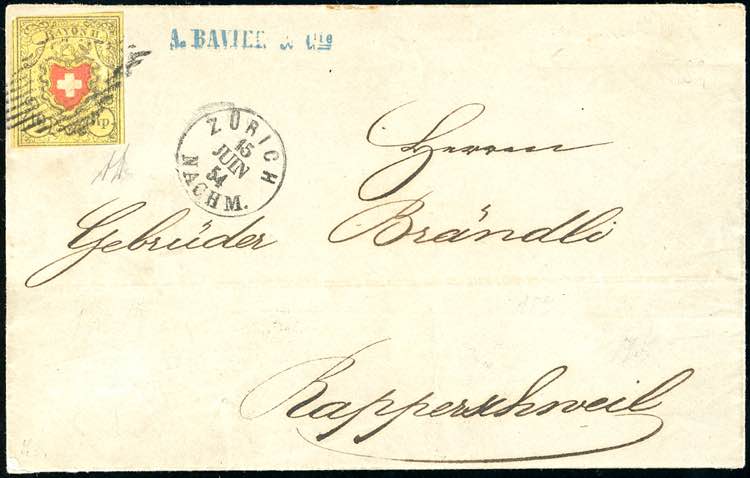 RAYON II
Rp.
A. BAVIER & Cie
ZÜRICH
15
JUIN
54
NACHM.
Herren
Gebrüder Brändli
Rapperschweil